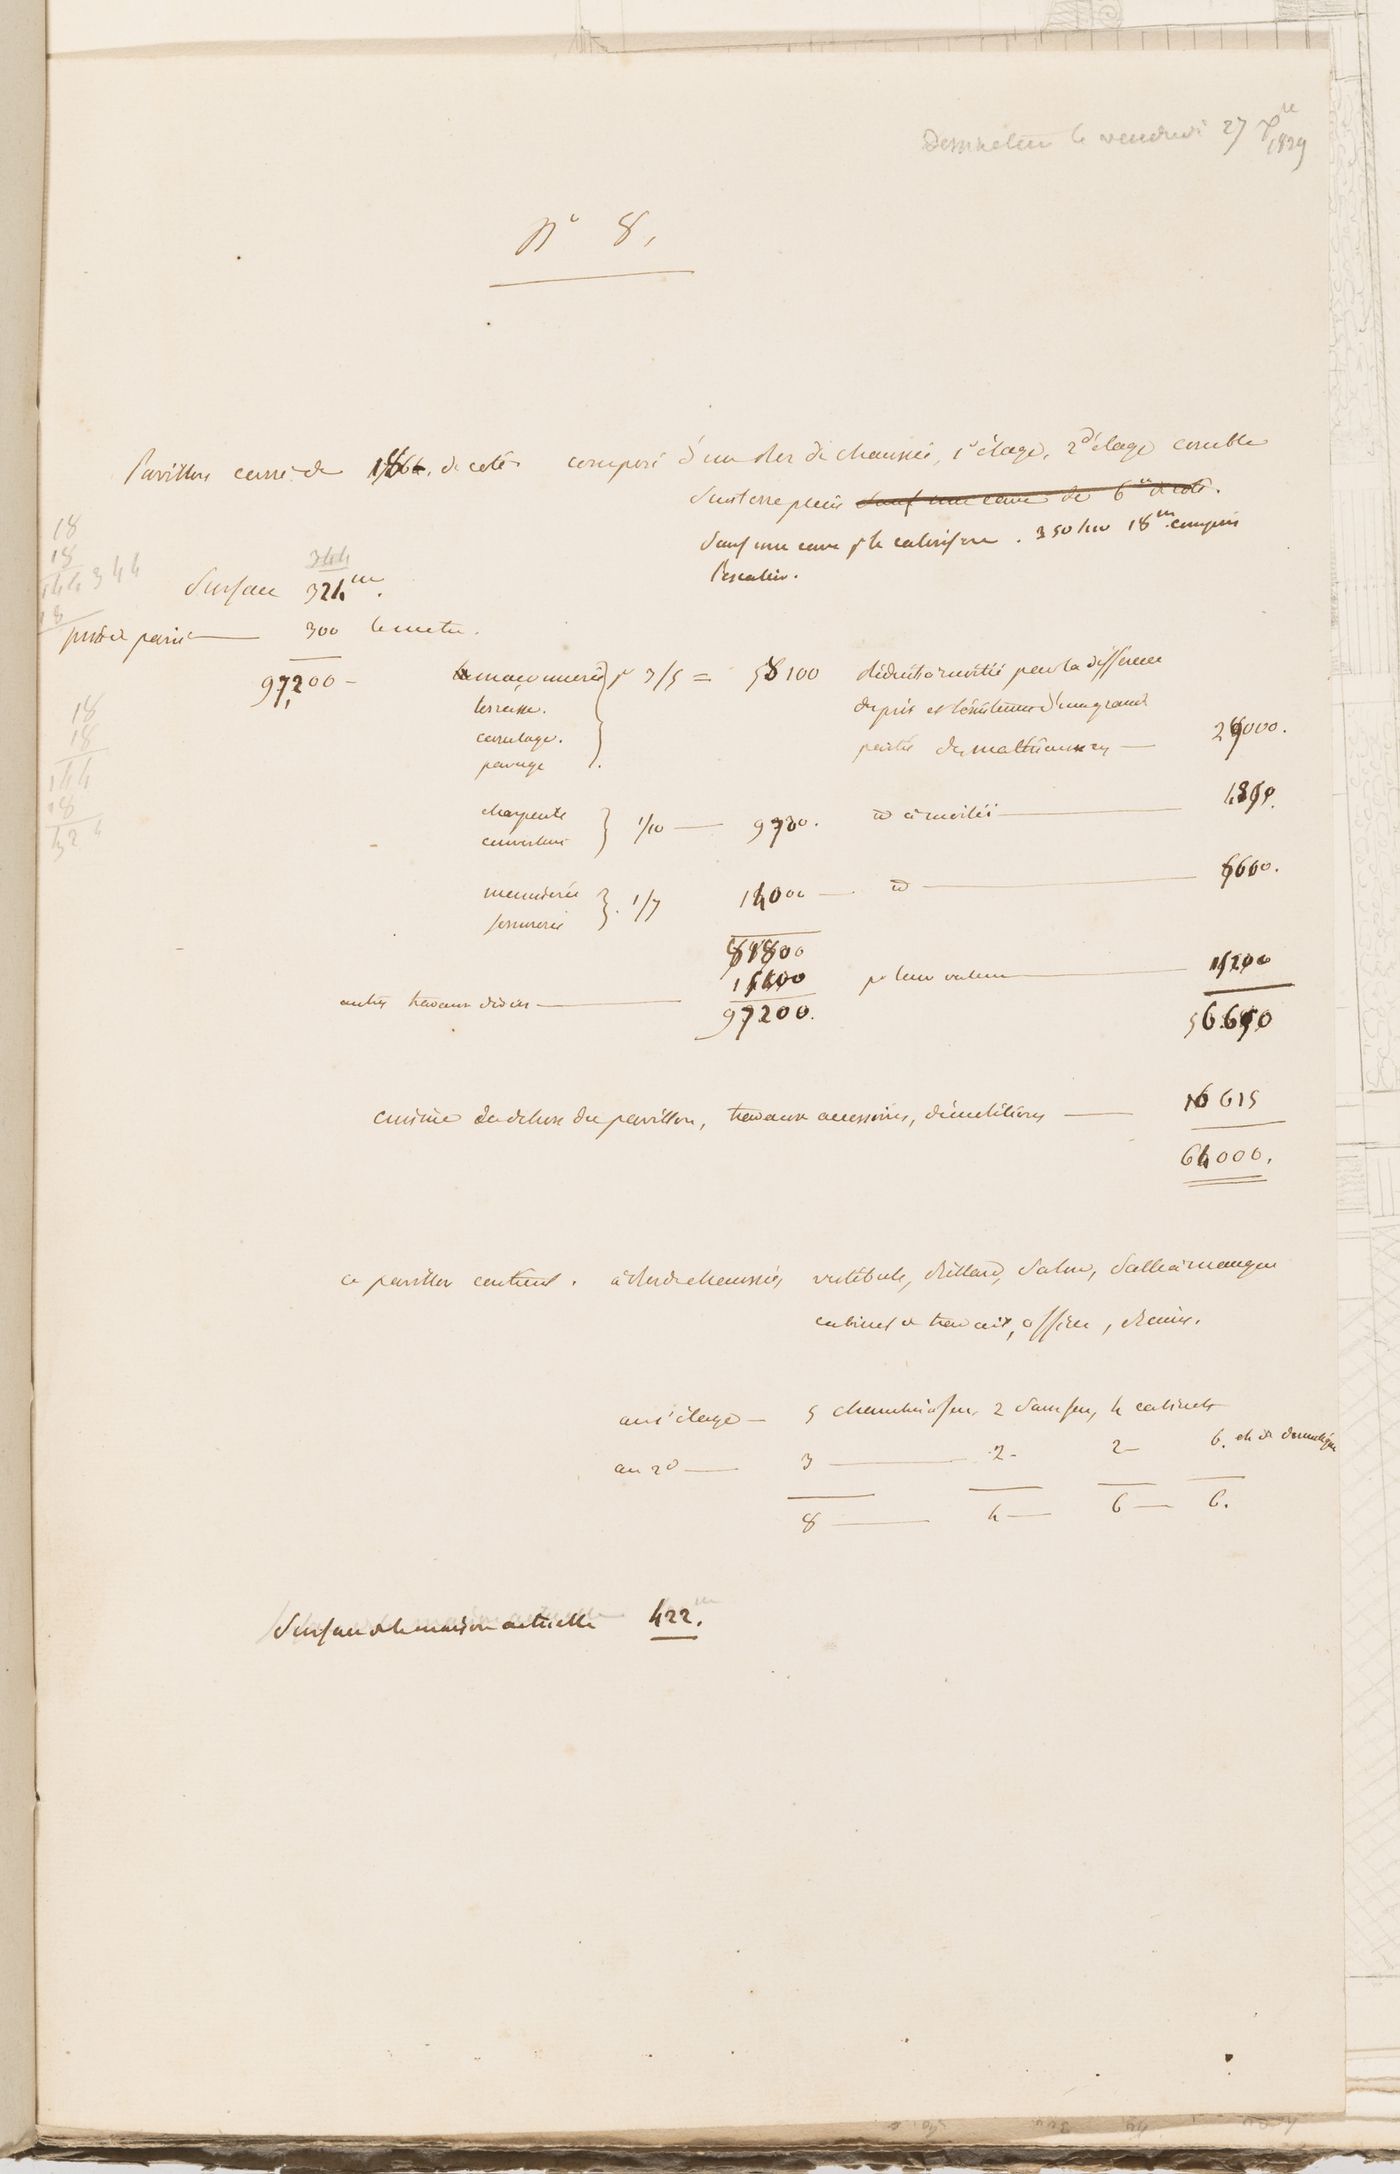 le vendredi 27 1829
N° 8,
Pavillon carré de 18 de coté composé d'un rez de chaussée, 1er étage, 2d étage comble
sur terre plein sauf une cave de 6m de coté.
sauf une cave pr le calorifere . 350 18m compris
l'escalier.
18
18
144 344
18
344
Surface 324m.
prix de paris 300 le metre.
97200 -
maçonnerie pr 3/5 = 58100 déduits a moitié pour la difference
terrasse. de prix et d'une grande
carrelage. partie des matériaux 29000.
pavage
18
18
144
18
324
charpente
couverture 1/10 — 9720. id a moitié —
menuiserie
serrurerie 1/7 14000 — id — 6600.
81800
autres travaux divers — 15400 pr leur valeur — 15200
97200. 56.650
cuisine en dehors du pavillon, travaux accessoires, démolitions — 615
64000.
ce pavillon contient . à rez de chaussée, vestibule, billard, salon, salle à manger
cabinet de travail, office,
au 1er étage — 5 chambres à feu, 2 sans feu, 4 cabinets
au 2d — 3 — 2 - 2 - 6. ch de domestique
8 — 4 — 6 — 6.
Surface de la maison actuelle 422m.